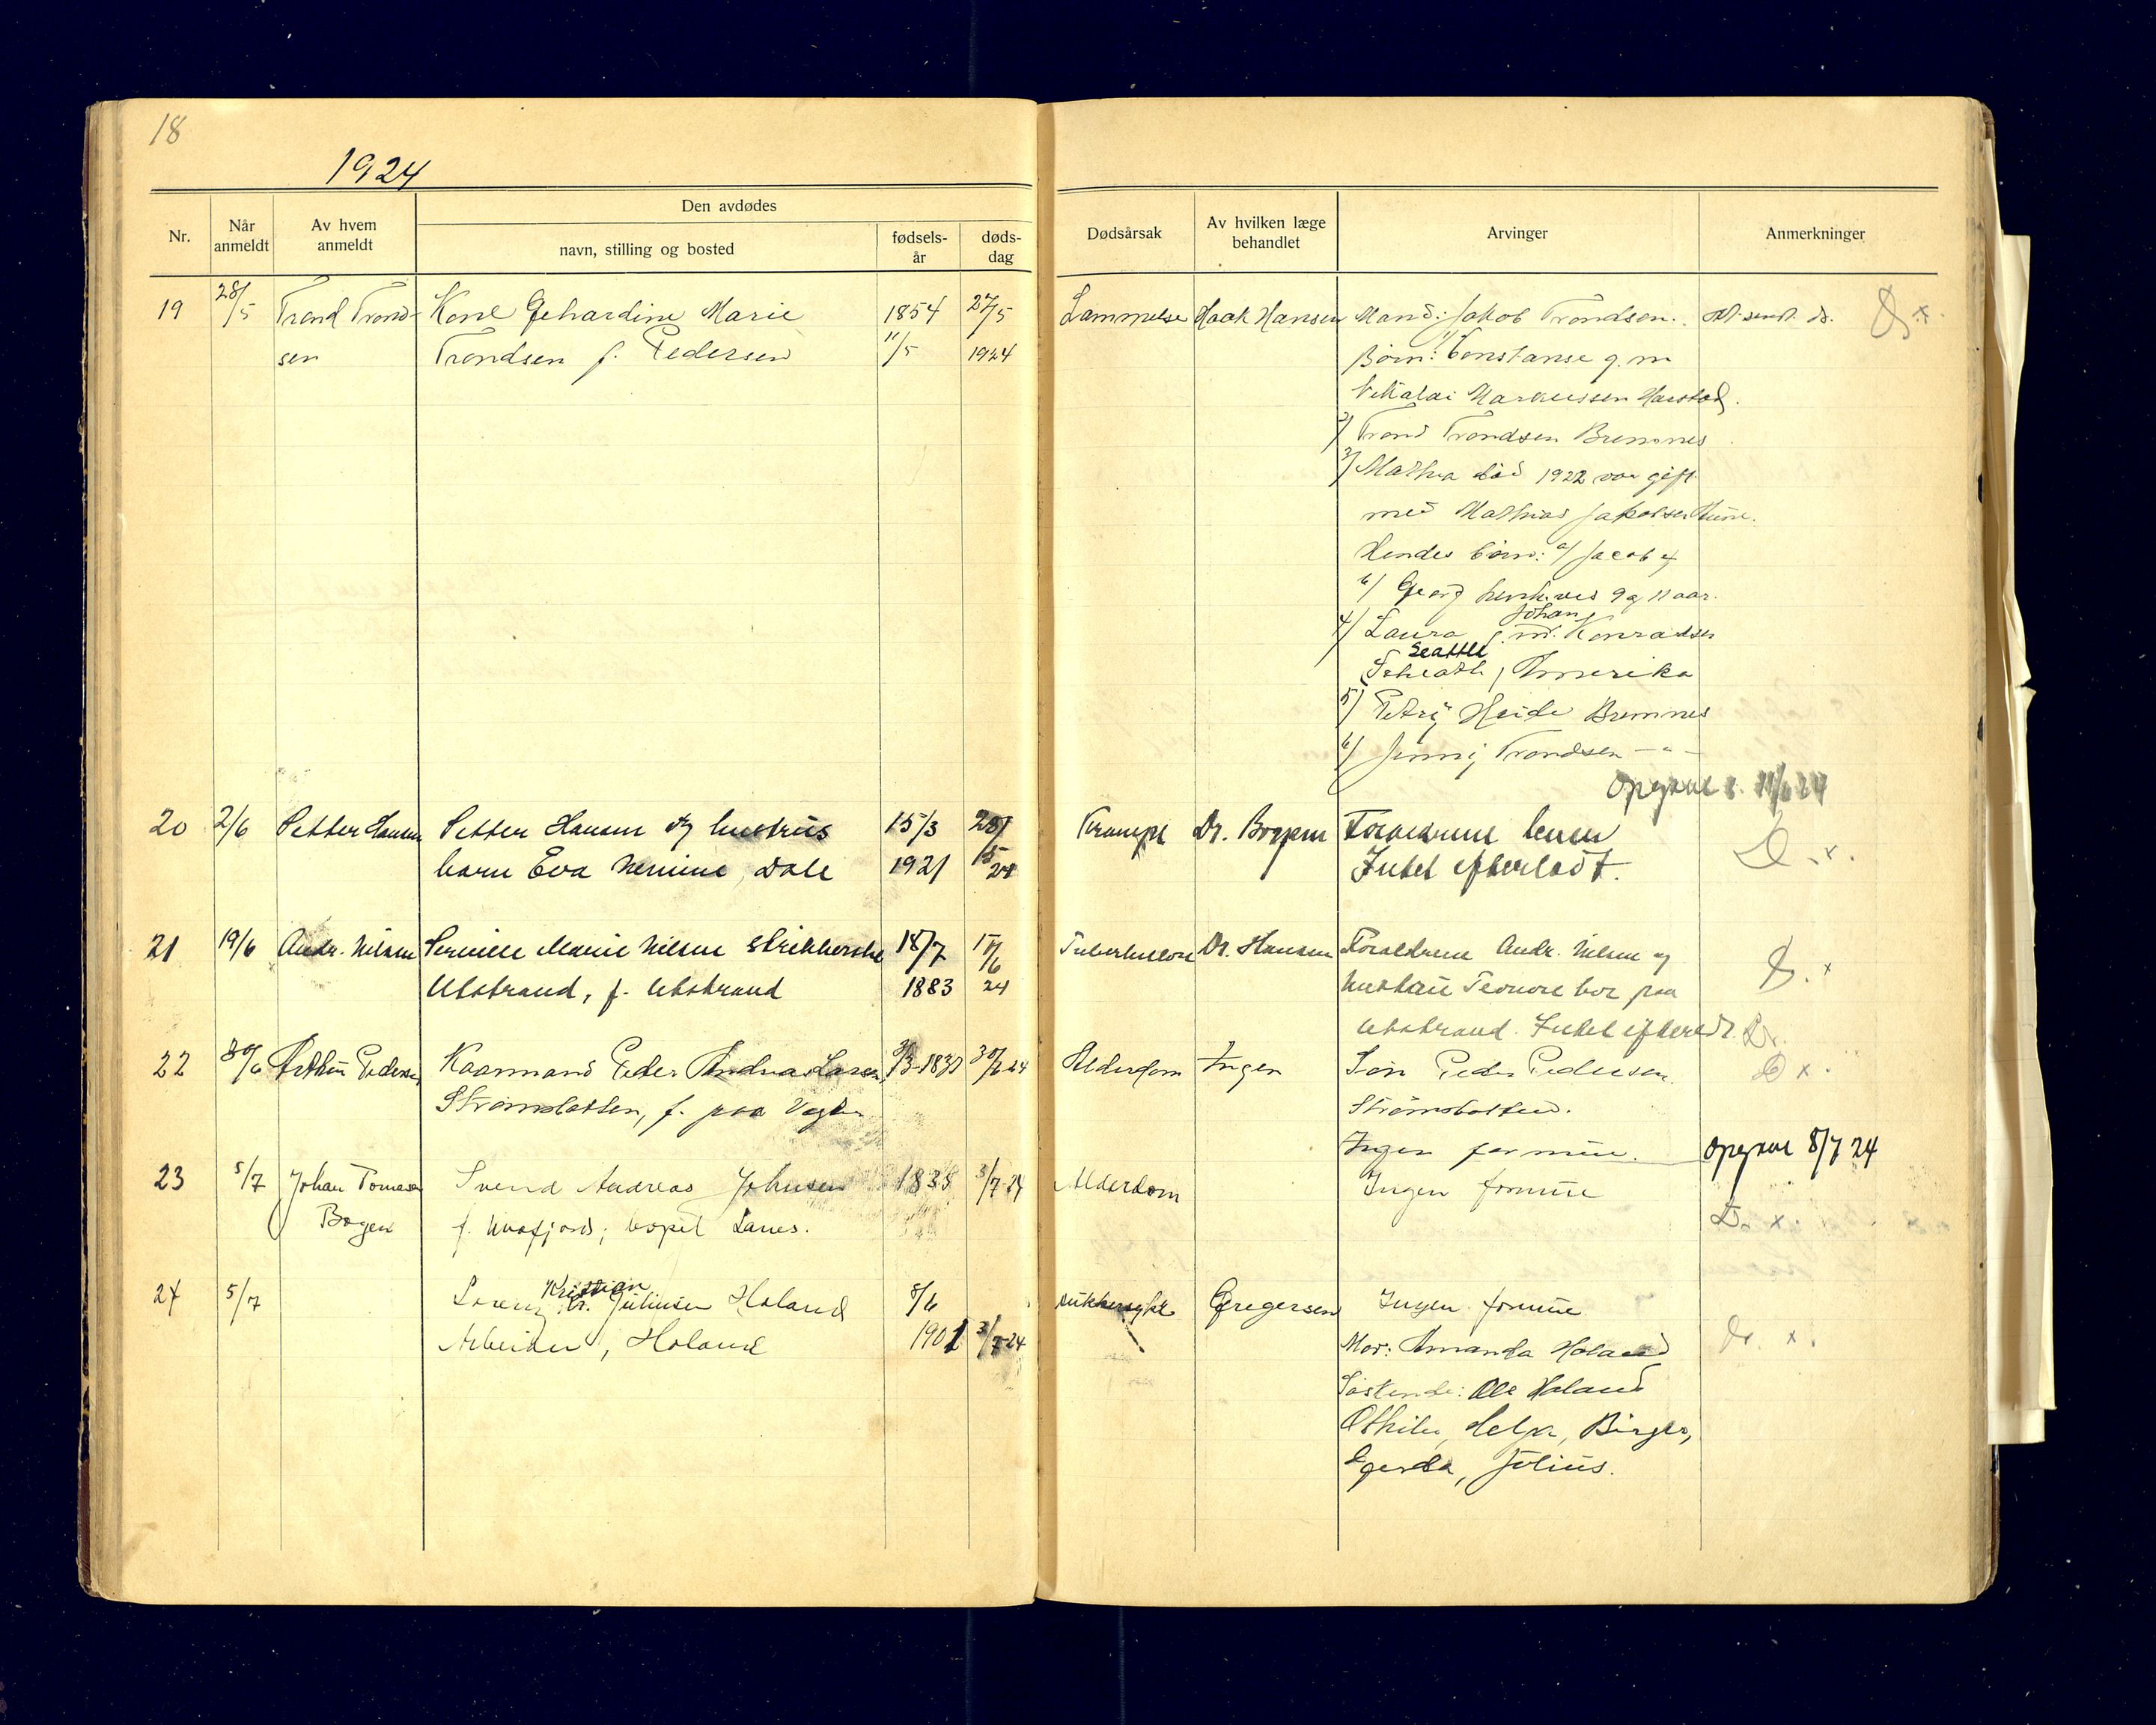 18
1924
Nr.
Når anmeldt
Av hvem anmeldt
Den avdødes
navn, stilling og bosted
fødselsår
dødsdag
Dødsårsak
Av hvilken læge behandlet
Arvinger
Anmerkninger
19 28/5 Trond Trond- Kone Gehardine Marie 1854 27/5 Lammelse Haak Hansen Mand: Jakob Trondsen.
sen Trondsen f. Pedersen 11/5 1924 Børn: 1/ Constanse g. m
Nikolai Markussen Harstad.
2/ Trond Trondsen Bremnes
3/ Mathea død 1922 var gift
med Mathias Jakobsen
Hendes børn: a/ Jacob og
b/ Georg henh.vis 9 og 11 aar.
Johan
4/ Laura g. m. Konradsen
Seattle
Amerika
5) Heide Bremnes
6/ Jenny Trondsen — " —
Opgave s. 11/6 24
20 2/6 Petter Hansen Petter Hansen og hustrus 15/3 28/ Krampe Dr. Borgen Forældrene lever
barn Eva Nemine, Dale 1921 /5 24 Intet efterladt.
21 19/6 Andr. Nilsen Pernille Marie Nilsen Strikkerske 18/7 17/6 Tuberkulose Dr. Hansen Forældrene Andr. Nilsen og
Utstrand, f. Utstrand 1883 24 hustru Leonore bor paa
Utstrand. Intet efterladt. D.
22 30/6 Arthur Pedersen Kaarmand Peder Andreas Larsen 30/6 24 Alderdom Ingen Søn Peder Pedersen.
Strømsbotten, f. paa Strømsbotten.
Ingen formue. Opgave 8/7 24
23 5/7 Johan Tomasen Svend Andreas Johnsen 1838 3/7 24 Alderdom Ingen formue
Bogen f. Kvæfjord; bopel Lanes.
Kristian
24 5/7 Lorenz Kr. Juliusen Holand 8/6 sukkersyke Gregersen Ingen formue
Arbeider, Holand 1901 3/7-24 Mor: Amanda Holand
Søskende: Ole Holand
Othilie, Helga, Birger,
Gerda, Julius.